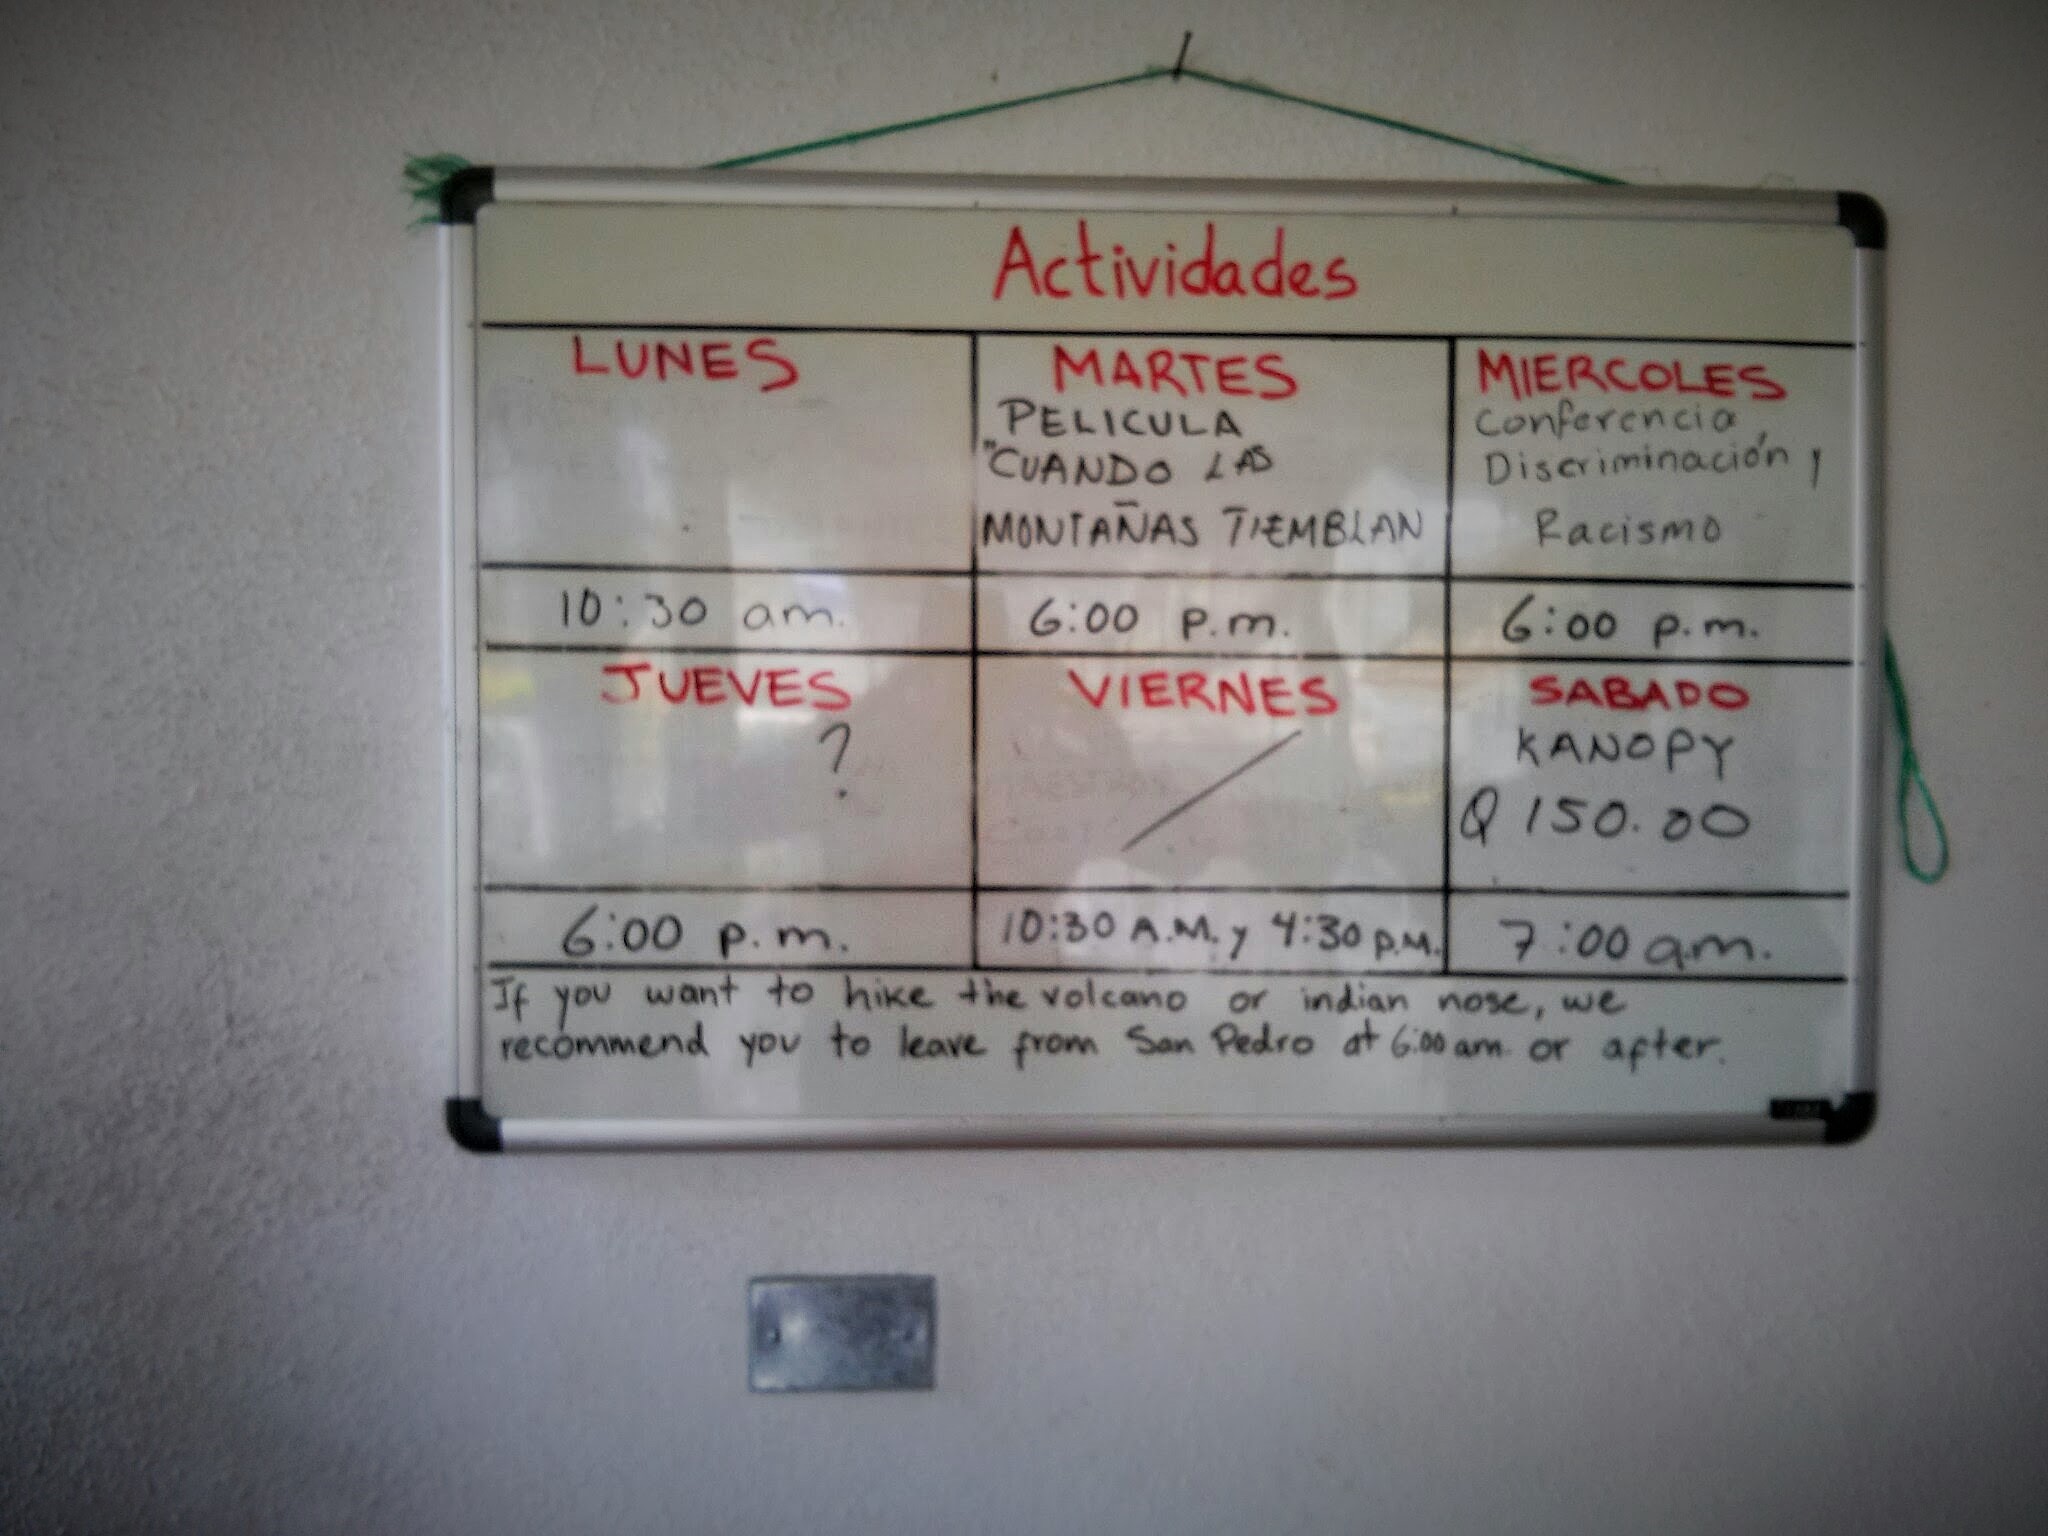 Actividades
LUNES
10:30 am.
MARTES
PELICULA
"CUANDO LAS
MONTAÑAS TIEMBLAN
6:00 p.m.
MIERCOLES
Conferencia,
Discriminación y
Racismo
6:00 p.m.
JUEVES
?
6:00 p.m.
VIERNES
10:30 A.M. y 4:30 P.M.
SABADO
KANOPY
Q 150.00
7:00 a.m.
If you want to hike the volcano or indian nose, we
recommend you to leave from San Pedro at 6:00 am. or after.